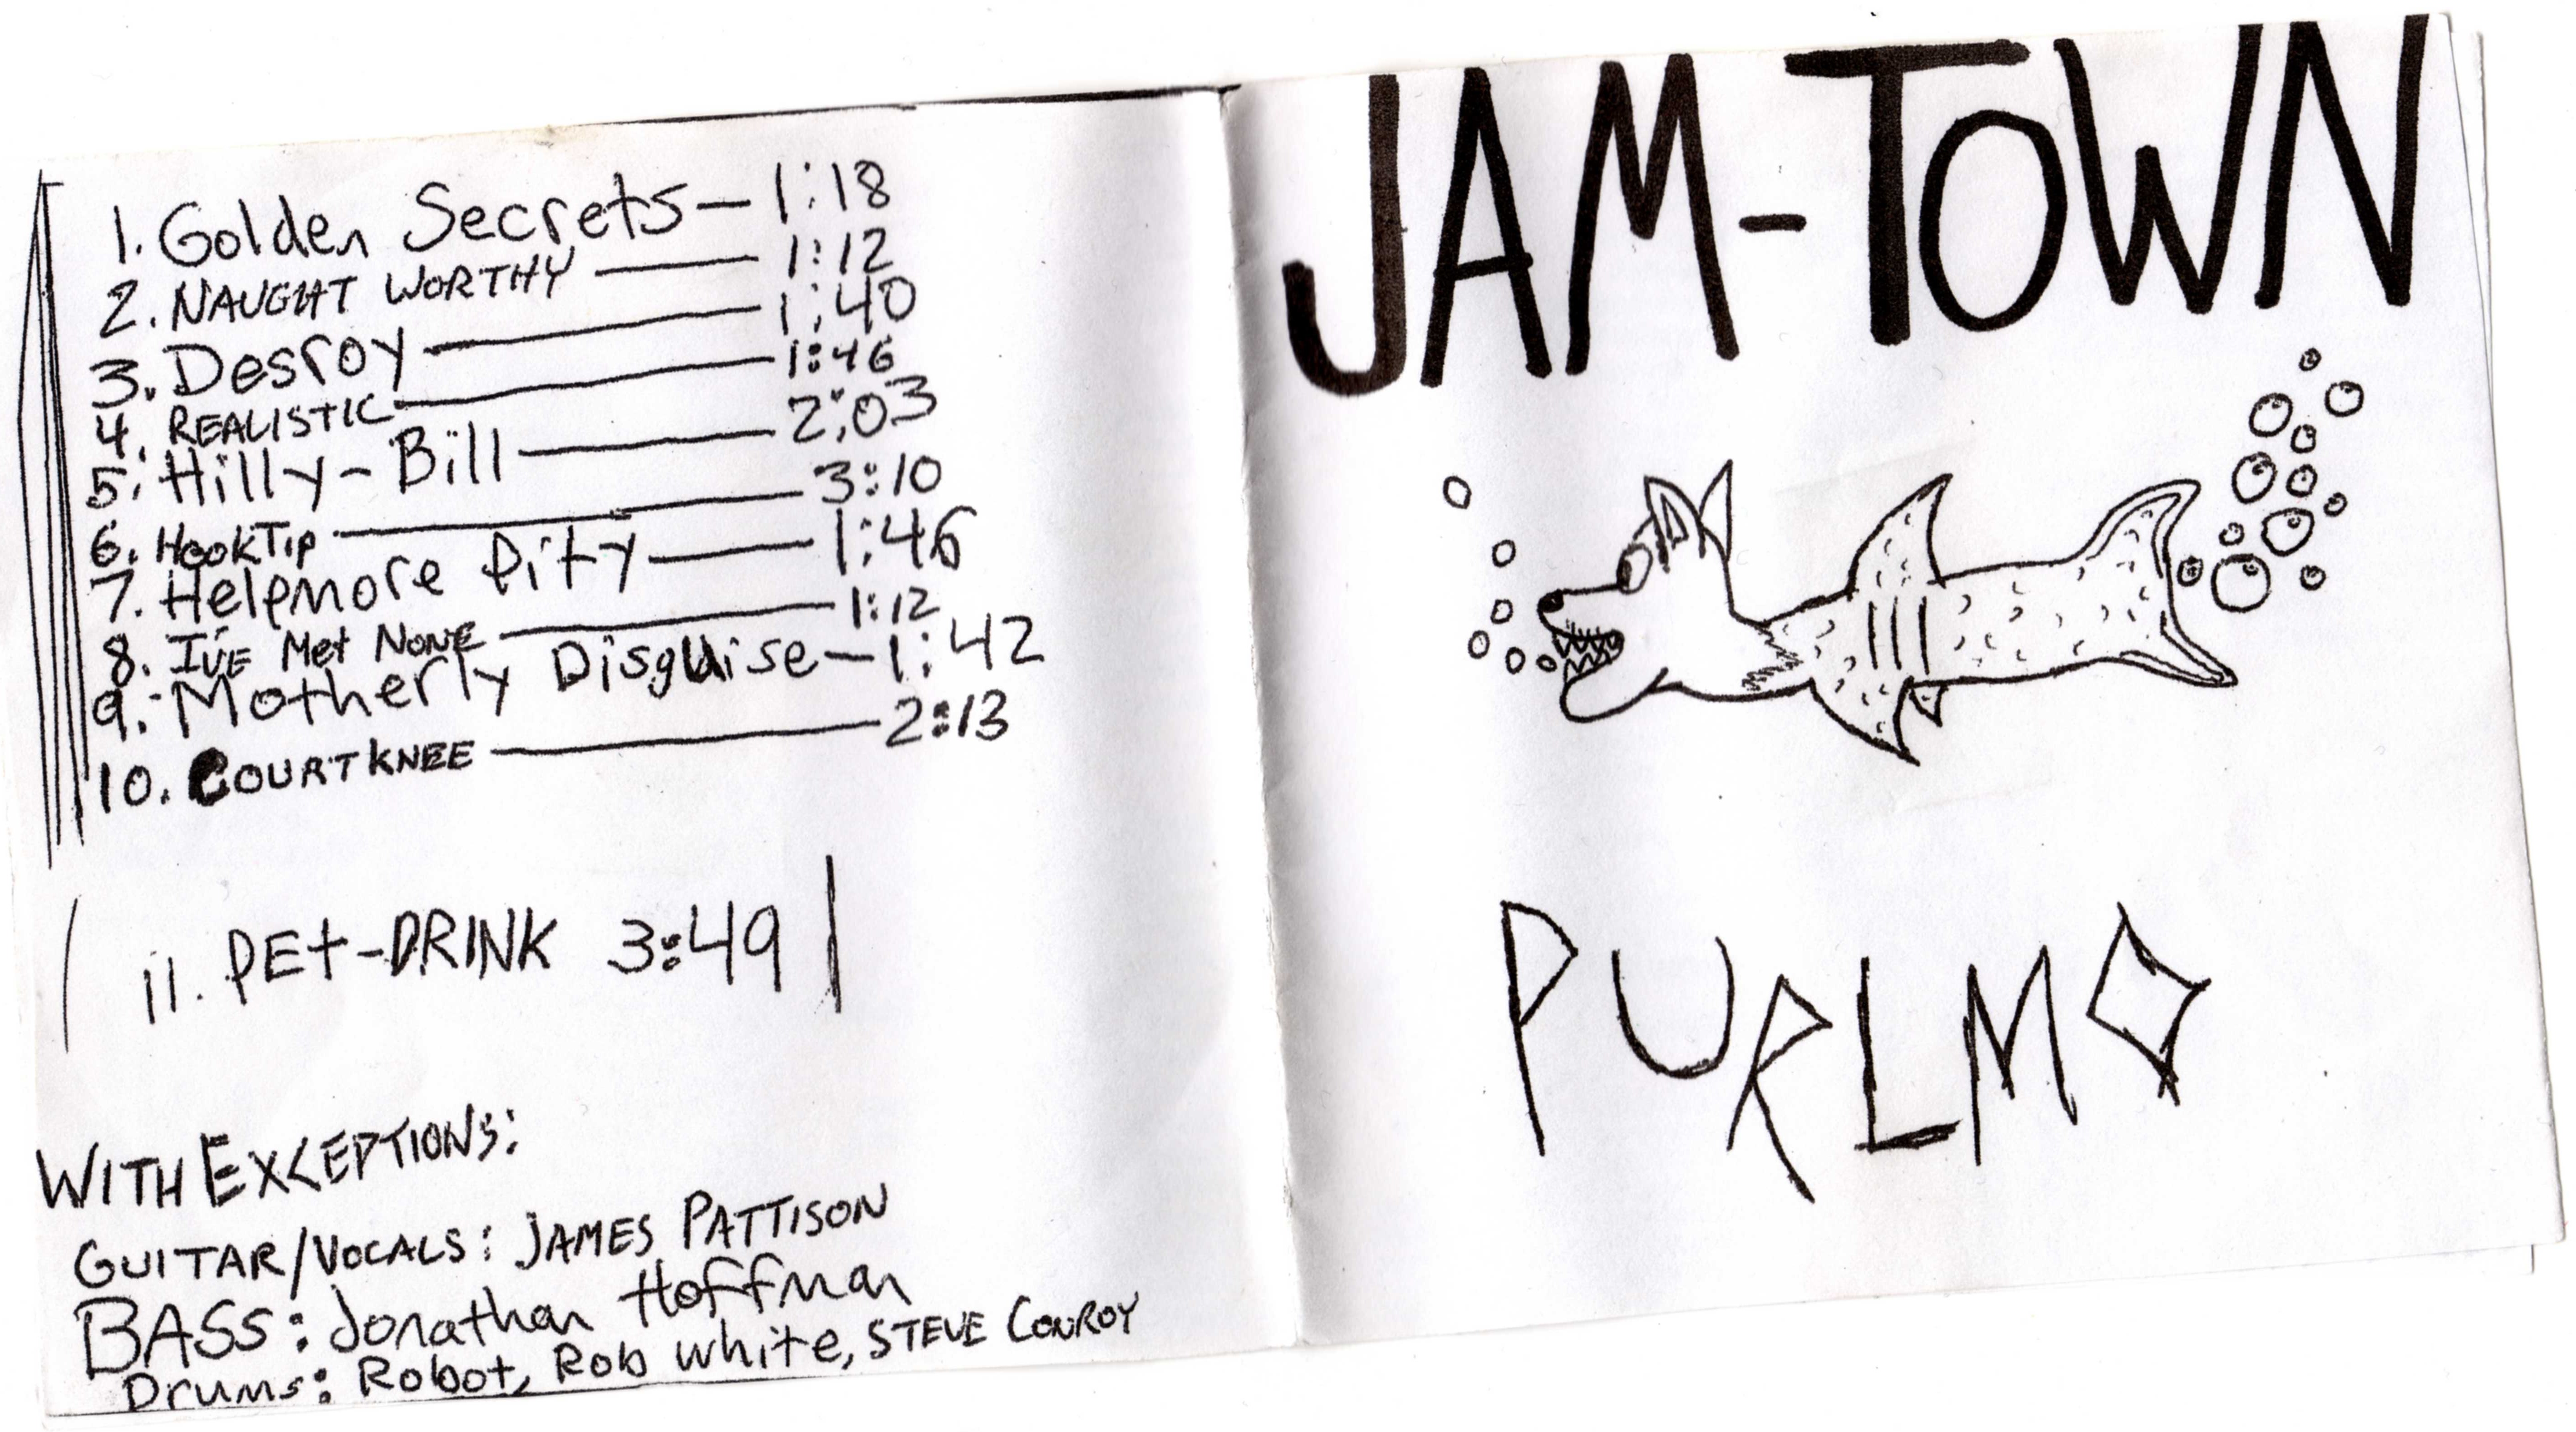 1. Golden Secrets — 1:18
2. NAUGHT WORTHY — 1:12
3. Desroy — 1:40
4. REALISTIC — 1:46
5. Hilly-Bill — 2:03
6. HookTip — 3:10
7. Helpmore Pity — 1:46
8. I'VE Met NONE — 1:12
9. Motherly Disguise — 1:42
10. COURTKNEE — 2:13
11. PEt-DRINK 3:49
WITH EXCEPTIONS:
GUITAR/VOCALS: JAMES PATTISON
BASS: Jonathan Hoffman
Drums: Robot, Rob White, STEVE CONROY
JAM-TOWN
PURLMO